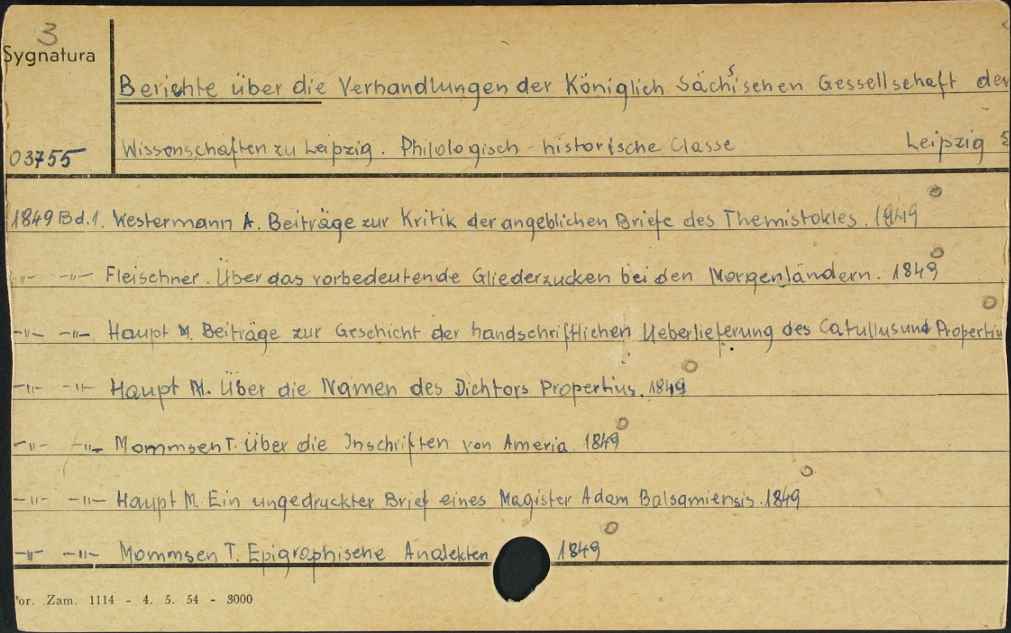 3
Sygnatura
Berichte über die Verhandlungen der Königlich Sächsischen Gessellschaft der
03755 Wissenschaften zu Leipzig. Philologisch-historische Classe Leipzig
1849 Bd.1. Westermann A. Beiträge zur Kritik der angeblichen Briefe des Themistokles. 1849
-"- -"- Fleischner. Über das vorbedeutende Gliederzucken bei den Morgenländern. 1849
-"- -"- Haupt M. Beiträge zur Geschicht der handschriftlichen Ueberlieferung des Catullus und Propertiu
-"- -"- Haupt M. Über die Namen des Dichtors Propertius. 1849
-"- -"- Mommsen T. Über die Inschriften von Ameria 1849
-"- -"- Haupt M. Ein ungedruckter Brief eines Magister Adam Balsamiensis. 1849
-"- -"- Mommsen T. Epigraphische Analekten 1849
or. Zam. 1114 - 4. 5. 54 - 3000